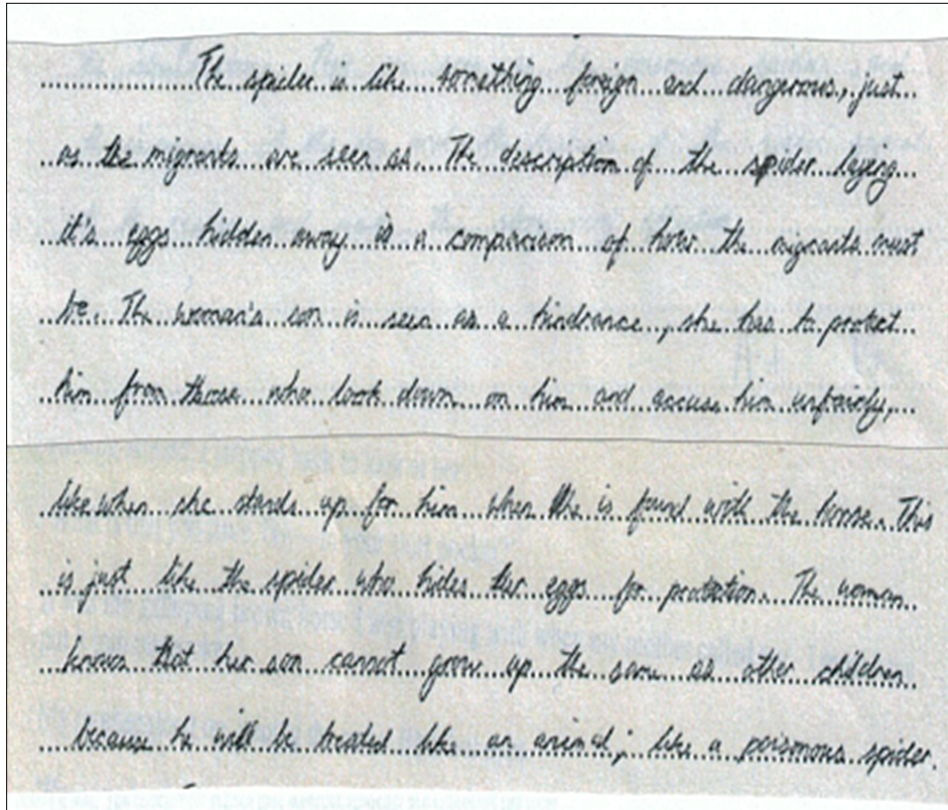 The spider is like something foreign and dangerous, just
as the migrants are seen as. The description of the spider laying
it's eggs hidden away is a comparison of how the migrants must
be. The woman's son is seen as a hindrance, she has to protect
him from those who look down on him and accuse him unfairly,
like when she stands up for him when he is found with the horse. This
is just like the spider who hides her eggs for protection. The woman
knows that her son cannot grow up the same as other children
because he will be treated like an animal; like a poisonous spider.